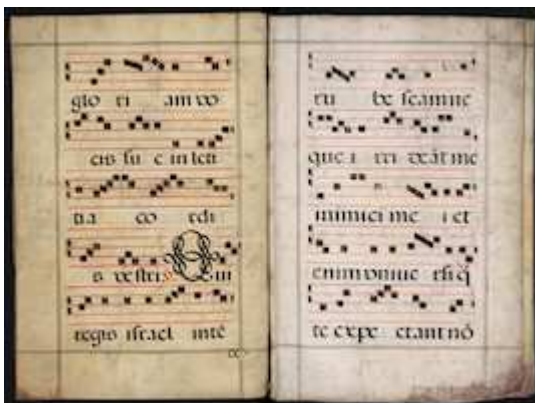 glo ri am vo
cis su e in leti
tia co rdi
s vestri. Q ui
regis israel inte
ru be scam ne
que i rri deāt me
inimici me i et
enim vniue rsi q̄
te expe ctant nō